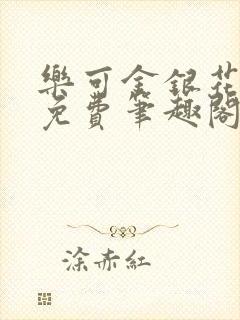 樂可金銀花
免費筆趣閣
涂赤紅